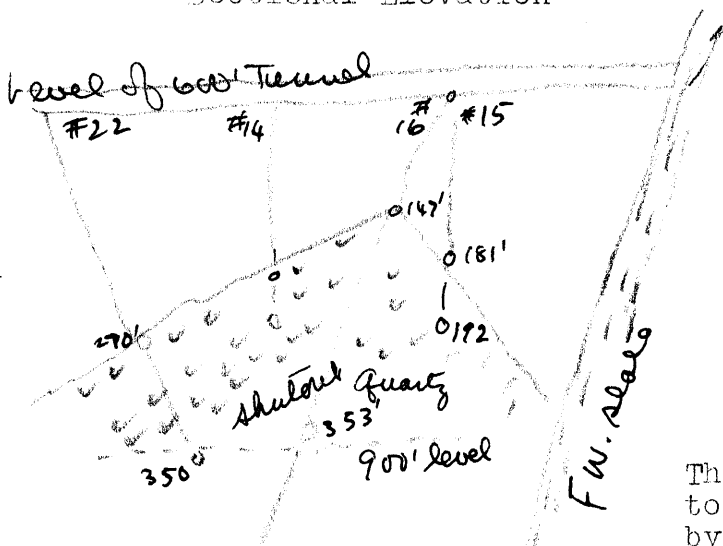 Sectional Elevation
Level of 600' Tunnel
#22
#14
#16
#15
147'
181'
290'
192
Quartz
353'
350
900' level
F W. slate
Th
to
by